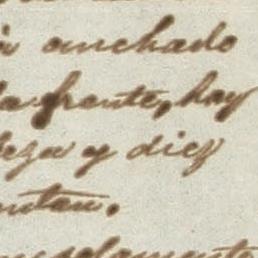 a anchado
la frente, hay
beza y diez
ntan.